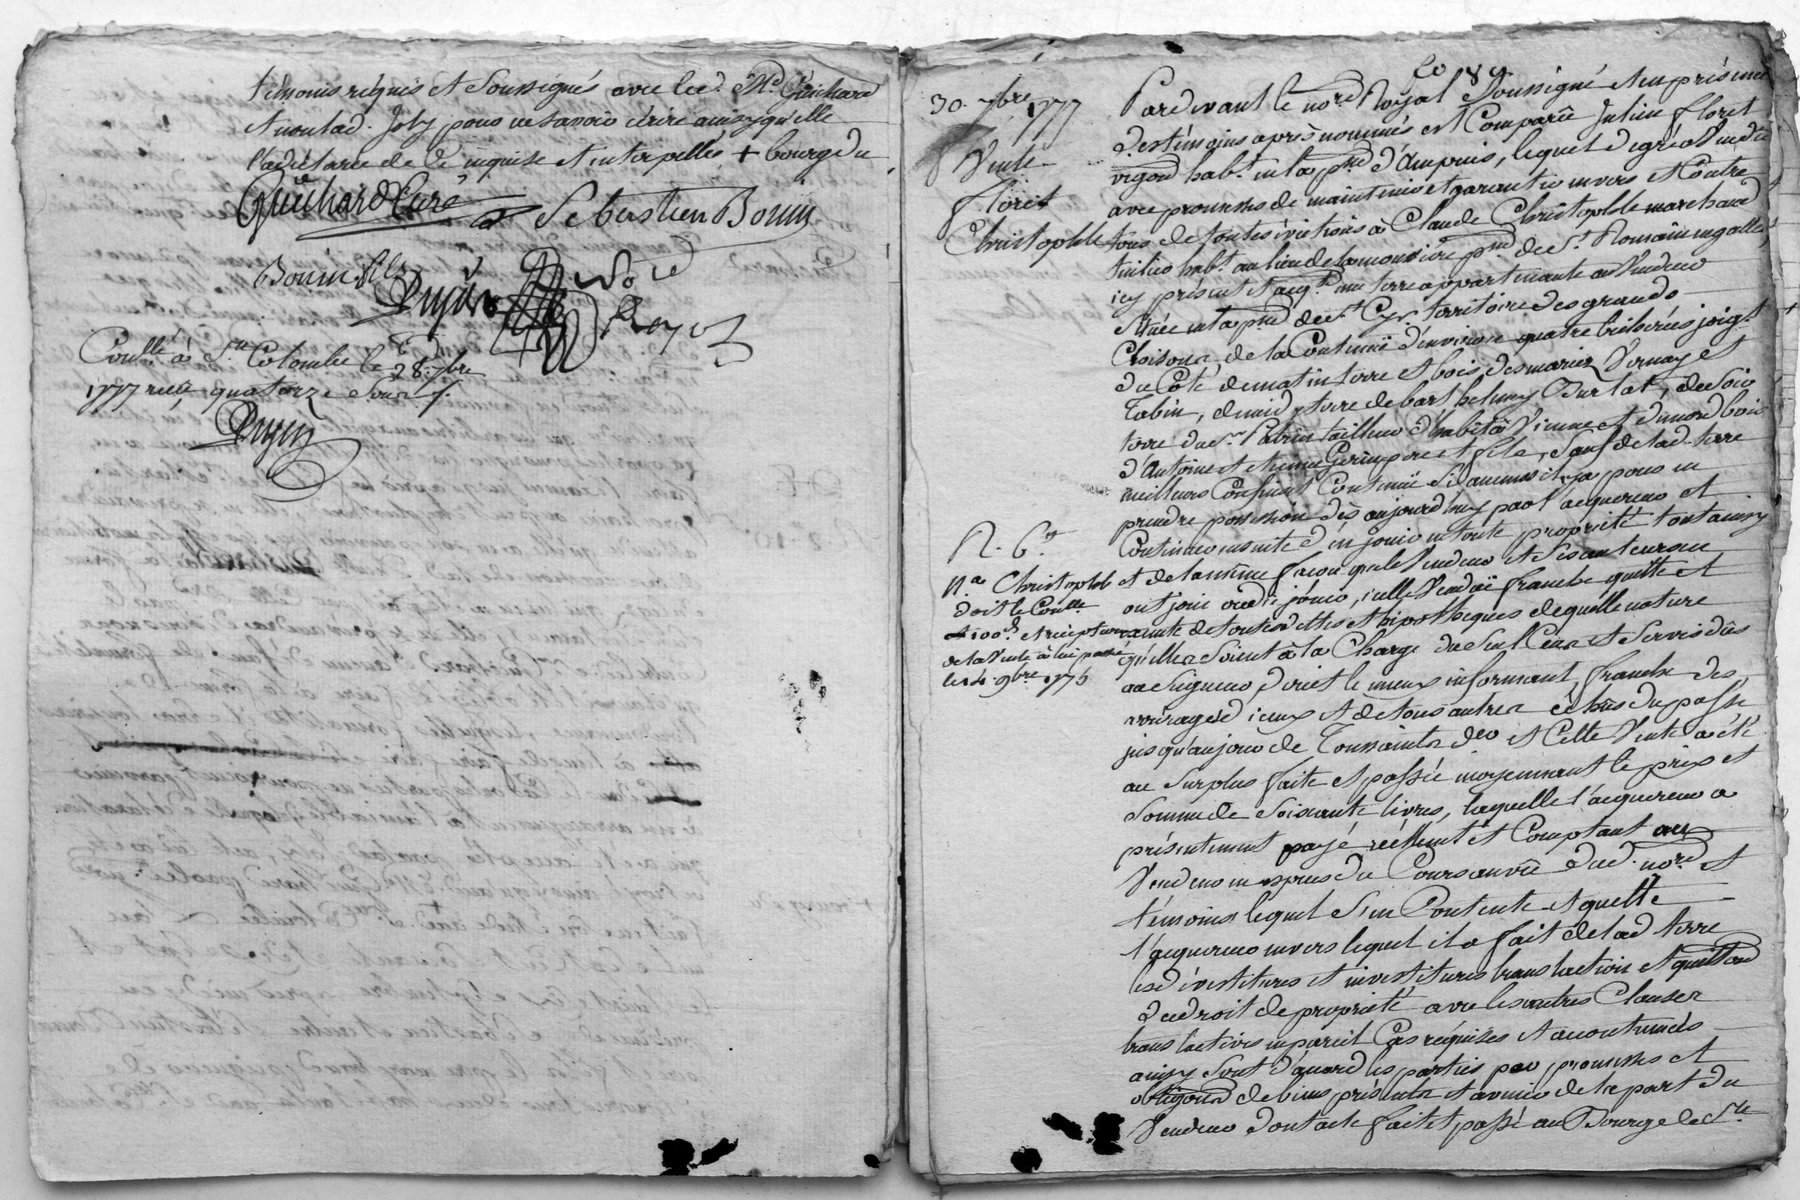 témoins réquis et Soussignés avec led. Me Guichard
et non lad. Joly pour ne Savoir écrire ainsy qu'elle
l'a déclaré de ce enquise et interpellés + bourg du
Guichard Curé Sebastien Bonin
Bonin fils
Dujin
Royal
Conllé à Ste Colombe le 28. 7bre
1777 reçu quatorze Sous
Dujin
30 7bre 1777
Vente
Floret
Christophle
N. a Christophle
doit le Conlle
et 100s. et reception
de la Vente à lui passée
le 14. 9bre 1776
Pardevant le nore Royal Soussigné et en présence
des témoins après nommés est Comparû Julien Floret
vigon habt. en la psse d'Ampuis, lequel de gré a Vendu
avec promesses de maintenir et garantir envers et Contre
tous de toutes évictions à Claude Christophle marchand
habt. au lieu de psse de St. Romain en galles
icy présent et acqt. une terre appartenante au Vendeur
Située en la psse de St. Cyr territoire des grands
Cloisons, de la Contenüe d'environ quatre bicherées joigt
du Coté de matin terre et bois des mariés Vernay et
Tabin, de midy terre de barthelemy Burlat, de Soir
terre du Sr. Fabrin tailleur d'habit à Vienne et de nord bois
d'Antoine et Etienne père et fils, Sauf de lad. terre
meilleurs Confins et Contenüe Si aucuns il y a pour en
prendre possession dès aujourd'huy par l'acquereur et
Continuer ensuite d'en jouir en toute propriété tout ainsy
et de la même façon que le Vendeur et Ses auteurs en
ont joui ou dû jouir, icelle Vendüe franche quitte et
exempte de toutes dettes et hipotheques de quelle nature
qu'elles Soient à la Charge du Seul Cens et Servis dûs
au Seigneur direct le mieux informant, franche des
arrérages d'iceux et de tous autres échus du passé
jusqu'au jour de Toussaints der et Cette Vente a été
au Surplus faite et passée moyennant le prix et
Somme de Soixante livres, laquelle l'acquereur a
présentement payé réellemt. et Comptant au
Vendeur en especes du Cours au vû dud. nore et
témoins lequel S'en Contente et quitte
l'acquereur envers lequel il a fait de lad. terre
les dévestitures et investitures translation et
du droit de propriété avec les autres Clauses
translatives en pareil Cas réquises et accoutumées
ainsy Sont d'accord les parties par promesses et
obligons de biens présents et avenir de la part du
Vendeur dont acte fait et passé au Bourg de Ste